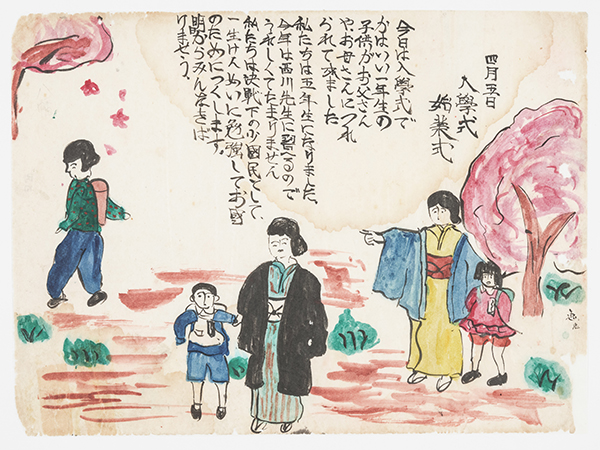 四月五日
入學式
始業式
今日は入學式で
かはいい一年生の
子供がお父さん
やお母さんにつれ
られて來ました
私たちは五年生になりました、
今年は西川先生に習へるので
うれしくてたまりません
私たちは決戰下の少國民として、
一生けんめいに勉強してお國
のためにつくします。
からみんな
ませう。